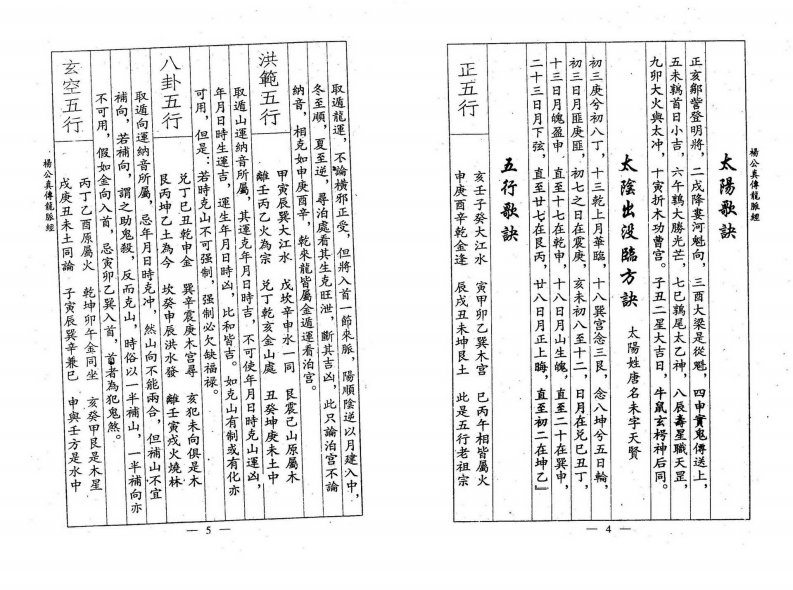 楊公真傳龍脈經
太陽歌訣
正亥鄒訾登明將，二戌降婁河魁向，三酉大梁是從魁，四申實鬼傳送上，
五未鶉首日小吉，六午鶉火勝光芒，七巳鶉尾太乙神，八辰壽星職天罡，
九卯大火與太冲，十寅折木功曹宫。子丑二星大吉日，牛鼠玄枵神后同。
太陰出没臨方訣 太陽姓唐名未字天賢
初三庚兮初八丁，十三乾上月華臨，十八巽宫念三艮，念八坤兮五日輪，
初三日月匪庚匪，初七之日在震庚，亥未初八至十二，日月在兑巳丑丁，
十三日月魄盈申，直至十七在乾申，十八日月山生魄，直至二十在巽申，
二十三日月下弦，直至廿七在艮丙，廿八日月正上晦，直至初二在坤乙」
五行歌訣
正五行
亥壬子癸大江水 寅甲卯乙巽木宫 巳丙午相皆屬火
申庚酉辛乾金逢 辰戌丑未坤艮土 此是五行老祖宗
— 4 —
取遁龍運，不論橫邪正受，但將入首一節來脈，陽順陰逆以月建入中，
冬至順，夏至逆，尋泊處看其生克旺泄，斷其吉凶，此只論泊宫不論
納音，相克如申庚酉辛，乾來龍皆屬金遁運看泊宫。
洪範五行
甲寅辰巽大江水 戊坎辛申水一同 艮震巳山原屬木
離壬丙乙火為宗 兑丁乾亥金山處 丑癸坤庚未土中
取遁山運納音所屬，其運克年月日時吉，不可使年月日時克山運凶，
年月日時生運吉，運生年月日時凶，比和皆吉。如克山有制或有化亦
可用，但是：若時克山不可强制，强制必欠缺福禄。
八卦五行
兑丁巳丑乾申金 巽辛震庚庚木宫尋 亥犯未向俱是木
艮丙坤乙土為今 坎癸申辰洪水發 離壬寅戌火燒林
取遁向運納音所屬，忌年月日時克冲，然山向不能兩合，但補山不宜
補向，若補向，謂之助鬼殺，反而克山，時俗以一半補山，一半補向亦
不可用，假如金向入首，忌寅卯乙巽入首，首者為犯鬼煞。
玄空五行
丙丁乙酉原屬火 乾坤卯午金同坐 亥癸甲艮是木星
戌庚丑未土同論 子寅辰巽辛兼巳 申與壬方是水中
楊公真傳龍脈經
— 5 —